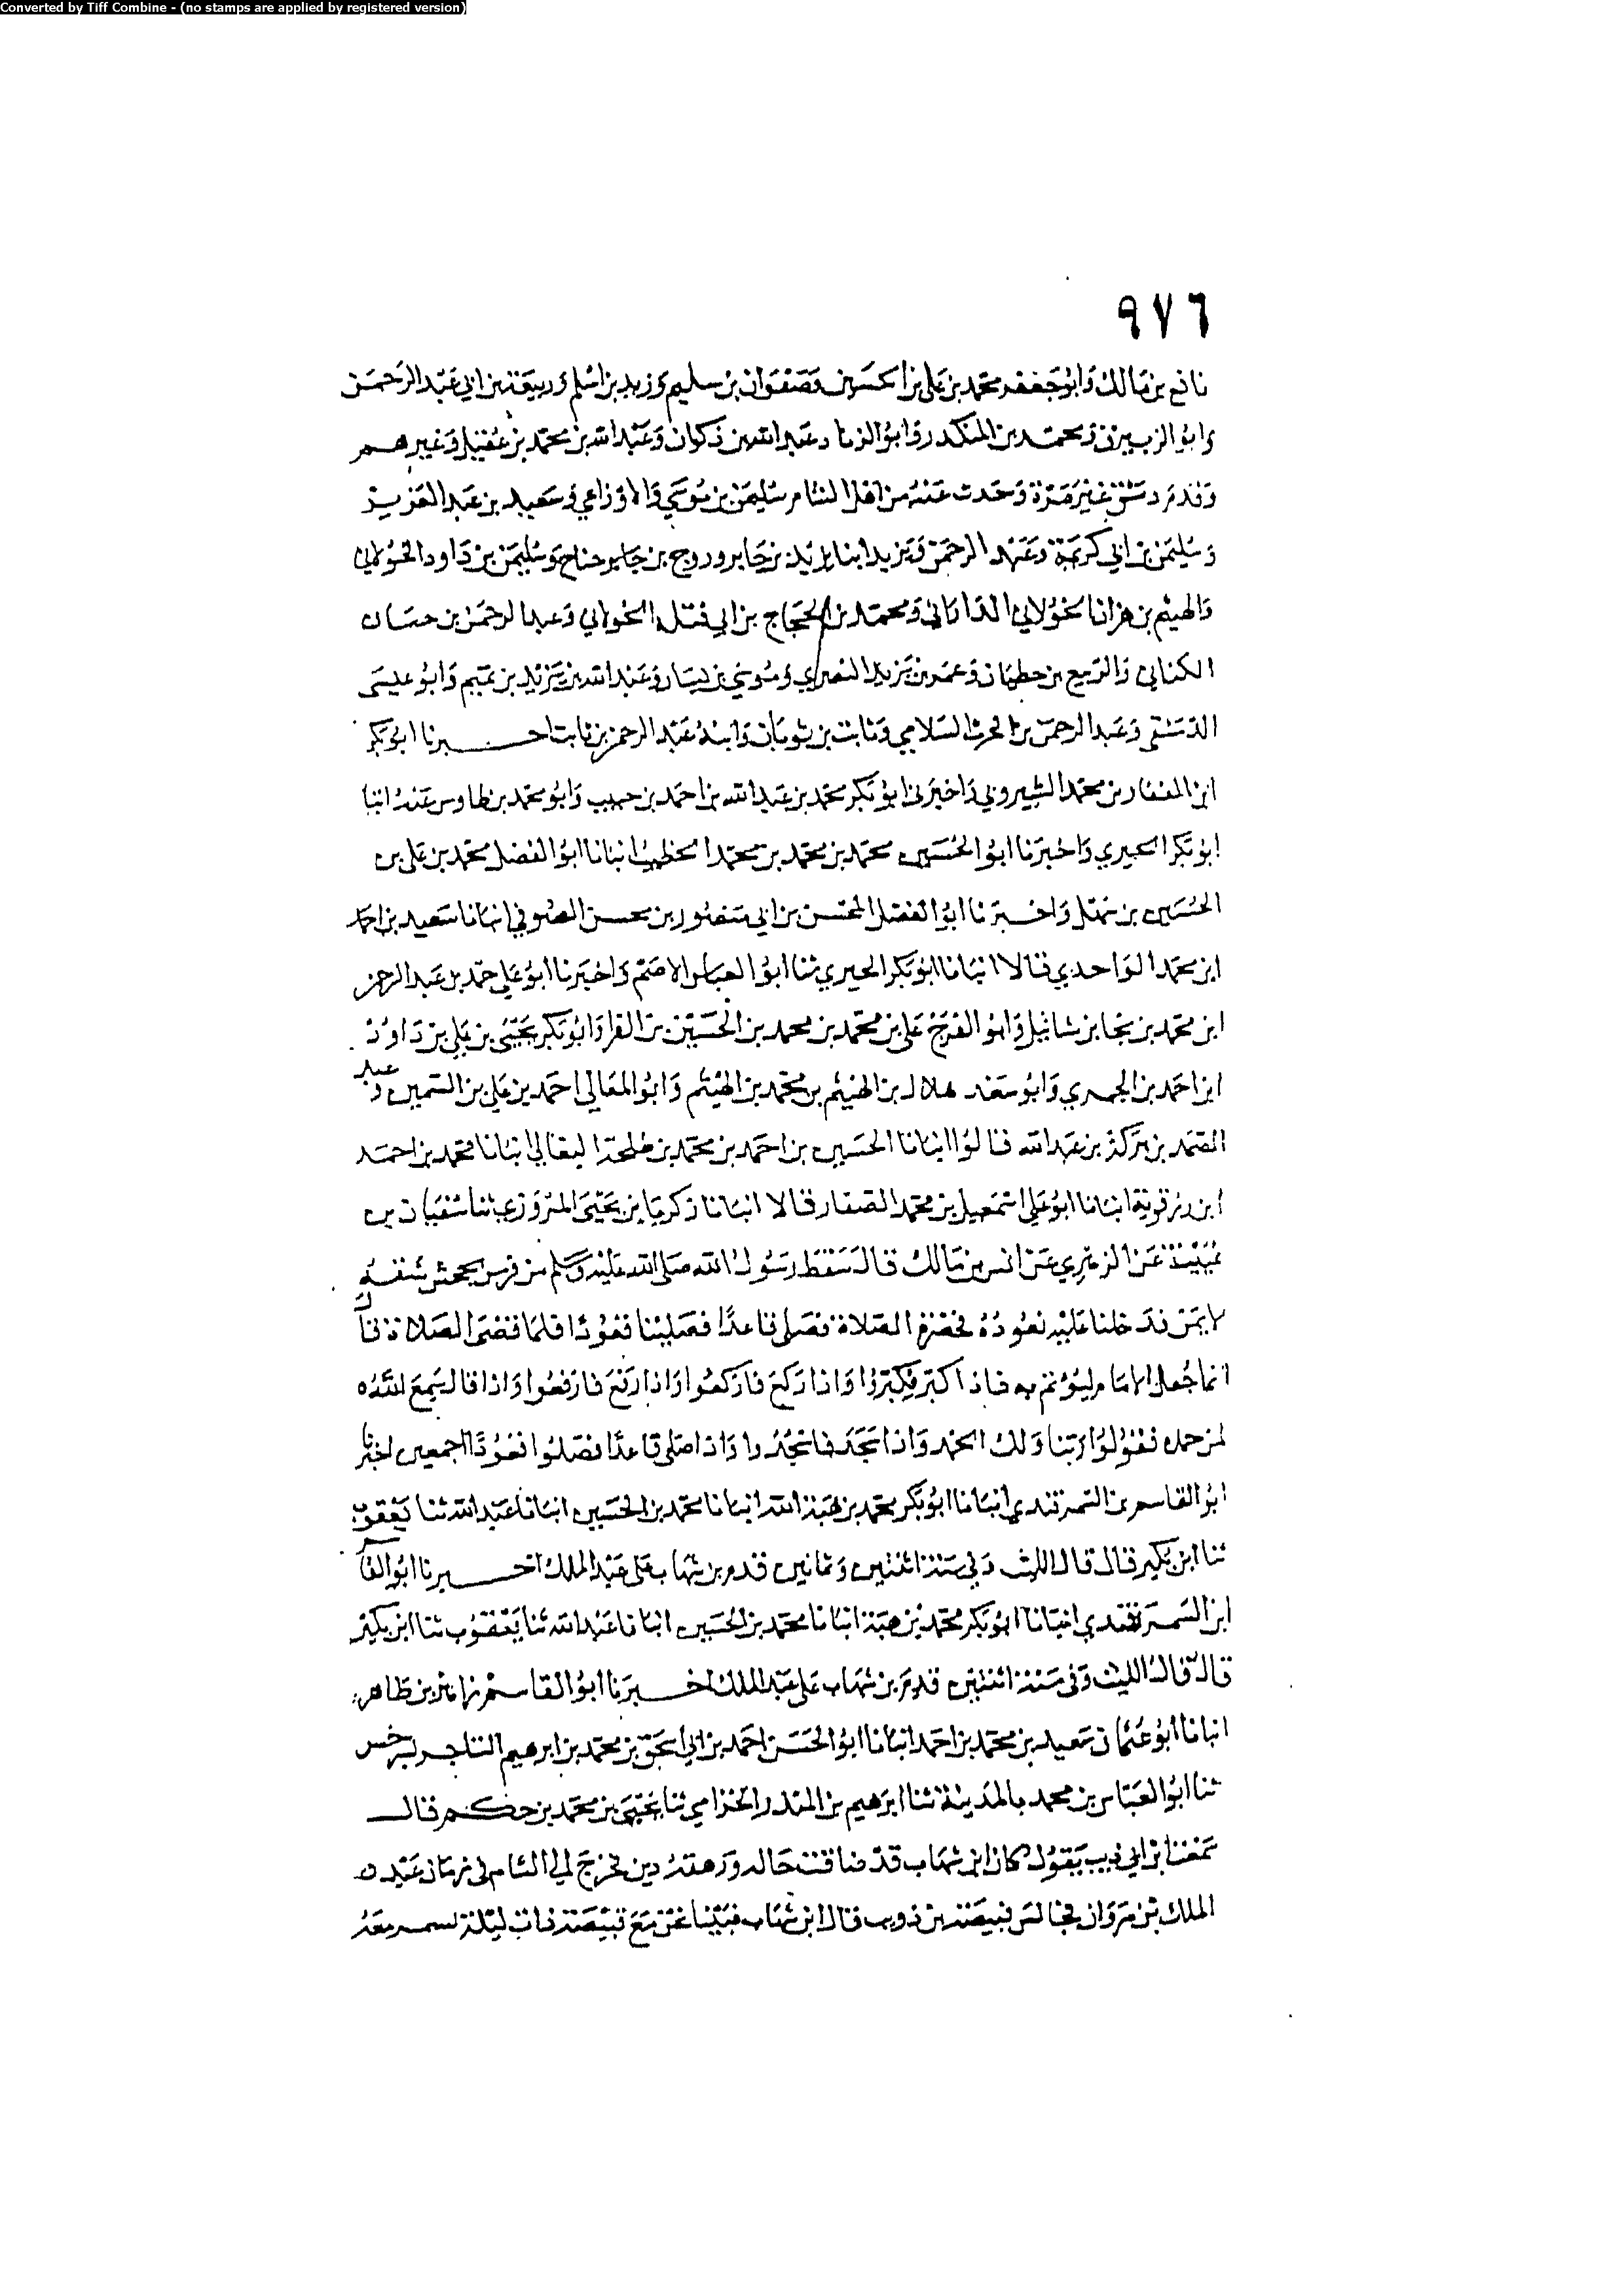 Converted by Tiff Combine - (no stamps are applied by registered version)
٩٧٦
نافع بن مالك وابو جعفر محمد بن علي بن الحسين وصفوان بن سليم وزيد بن اسلم وربيعة بن ابي عبد الرحمن
وابو الزبير ومحمد بن المنكدر وابو الزناد عبد الله بن ذكوان وعبد الله بن محمد بن عقيل وغيرهم
وقدم دمشق غير مرة وحدث عنه من اهل الشام سليمن بن موسى والاوزاعي وسعيد بن عبد العزيز
وسليمن بن ابي كريمة وعبد الرحمن ويزيد ابنا يزيد بن جابر وروح بن جناح وسليمن بن داود الخولاني
والهيثم بن هزان الخولاني الداراني ومحمد بن الحجاج بن ابي قتلة الخولاني وعبد الرحمن بن حسان
الكناني والربيع بن حطيان وعمر بن يزيد النصري وموسى بن يسار وعبد الله بن يزيد بن تميم وابو عيسى
الدمشقي وعبد الرحمن بن الحرث السلامي وثابت بن ثوبان وابنه عبد الرحمن بن ثابت اخبرنا ابو بكر
ابن الغفار بن محمد الشيروني واخبرني ابو بكر محمد بن عبد الله بن احمد بن حبيب وابو محمد بن طاوس عنه انبا
ابو بكر الحيري واخبرنا ابو الحسين محمد بن محمد بن محمد الخطيب انبانا ابو الفضل محمد بن علي بن
الحسين بن سهل واخبرنا ابو الفضل المحسن بن ابي منصور بن محسن الصوفي انبانا سعيد بن احمد
ابن محمد الواحدي قالا انبانا ابو بكر الحيري ثنا ابو العباس الاصم واخبرنا ابو علي حمد بن عبد الرحمن
ابن محمد بن نجا بن شاتيل وابو الفرج علي بن محمد بن محمد بن الحسين بن الفرا وابو بكر يحيى بن علي بن داود
ابن احمد بن الجمري وابو سعد هلال بن الهيثم بن محمد بن الهيثم وابو المعالي احمد بن علي بن السمين وعبد
الصمد بن بركة بن عبد الله قالوا انبانا الحسين بن احمد بن محمد بن طلحة النعالي انبانا محمد بن احمد
ابن رزقوية انبانا ابو علي اسمعيل بن محمد الصفار قالا انبانا زكريا بن يحيى المروزي ثنا سفيان بن
عيينة عن الزهري عن انس بن مالك قال سقط رسول الله صلى الله عليه وسلم من فرس فجحش شقه
الايمن فدخلنا عليه نعوده فحضرت الصلاة فصلى قاعدا فصلينا قعودا فلما قضى الصلاة قال
انما جعل الامام ليؤتم به فاذا كبر فكبروا واذا ركع فاركعوا واذا رفع فارفعوا واذا قال سمع الله
لمن حمده فقولوا ربنا ولك الحمد واذا سجد فاسجدوا واذا صلى قاعدا فصلوا قعودا اجمعين اخبرنا
ابو القاسم بن السمرقندي انبانا ابو بكر محمد بن هبة الله انبانا محمد بن الحسين انبانا عبد الله ثنا يعقوب
ثنا ابن بكير قال قال الليث وفي سنة اثنتين وثمانين قدم بن شهاب على عبد الملك اخبرنا ابو القاسم
ابن السمرقندي انبانا ابو بكر محمد بن هبة انبانا محمد بن الحسين انبانا عبد الله ثنا يعقوب ثنا ابن بكير
قال قال الليث وفي سنة اثنتين قدم بن شهاب على عبد الملك اخبرنا ابو القاسم زاهر بن طاهر
انبانا ابو عثمان سعيد بن محمد بن احمد انبانا ابو الحسن احمد بن ابي اسحق بن محمد بن ابرهيم التاجر بسرخس
ثنا ابو العباس بن محمد بالمدينة ثنا ابرهيم بن المنذر الحزامي ثنا يحيى بن محمد بن حكم قال
سمعت ابن ابي ذيب يقول كان ابن شهاب قد ضاقت حاله ورهقه دين فخرج الى الشام في زمان عبد
الملك بن مروان فجالس قبيصة بن ذويب قال ابن شهاب فبينا نحن مع قبيصة ذات ليلة نسمر معه